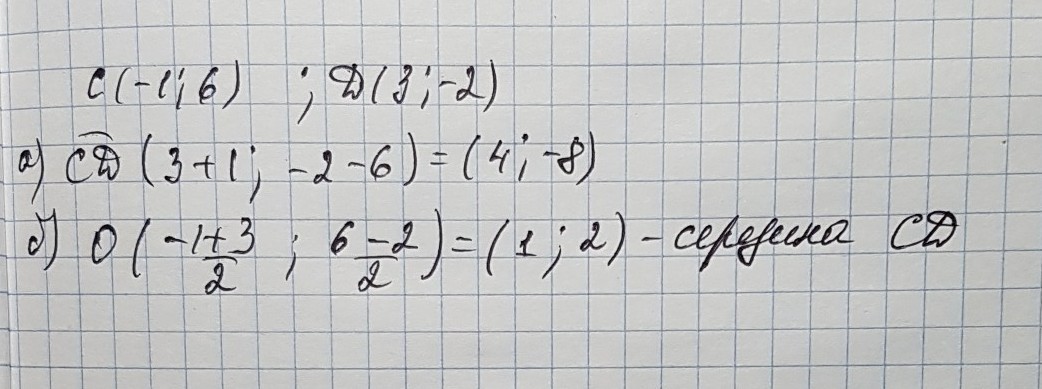 C(-1;6) ; D(3;-2)
а) CD (3+1; -2-6) = (4;-8)
б) O(-1+3/2 ; 6-2/2) = (1;2) - середина CD